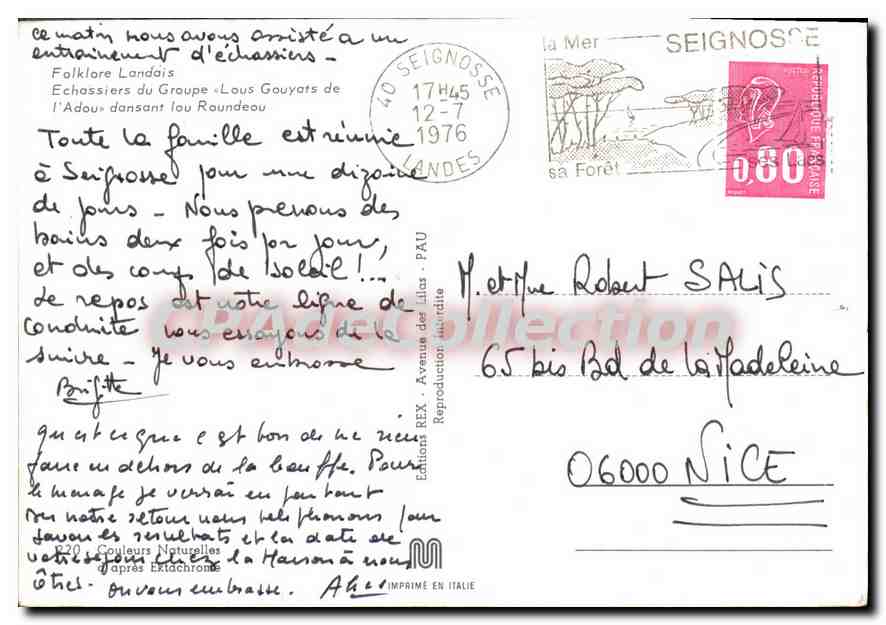 ce matin nous avons assisté a un
entrainement d'échassiers -
Folklore Landais
Echassiers du Groupe «Lous Gouyats de
l'Adou» dansant lou Roundeou
Toute la famille est réunie
à Seignosse pour une dizaine
de jours - Nous prenons des
bains deux fois par jour,
et des coups de soleil !..
Le repos est notre ligne de
conduite nous essayons de la
suivre - Je vous embrasse
Brigitte
qu'est ce que c'est bon de ne rien
faire en dehors de la bouffe. Pour
le menage je verrai en partant
notre retour nous telephonons pour
savoir les resultats et la date de
votre sejour chez la Maison à nous
ôtres. on vous embrasse.
220 - Couleurs Naturelles
d'après Ektachrome
IMPRIMÉ EN ITALIE
Editions REX - Avenue des Lilas - PAU
Reproduction interdite
40 SEIGNOSSE
17H45
12-7
1976
LANDES
la Mer
SEIGNOSSE
sa Forêt
ses Lacs
REPUBLIQUE FRANÇAISE
0,80
M. et Mme Robert SALIS
65 bis Bd de la Madeleine
06000 NICE
CPAdeCollection